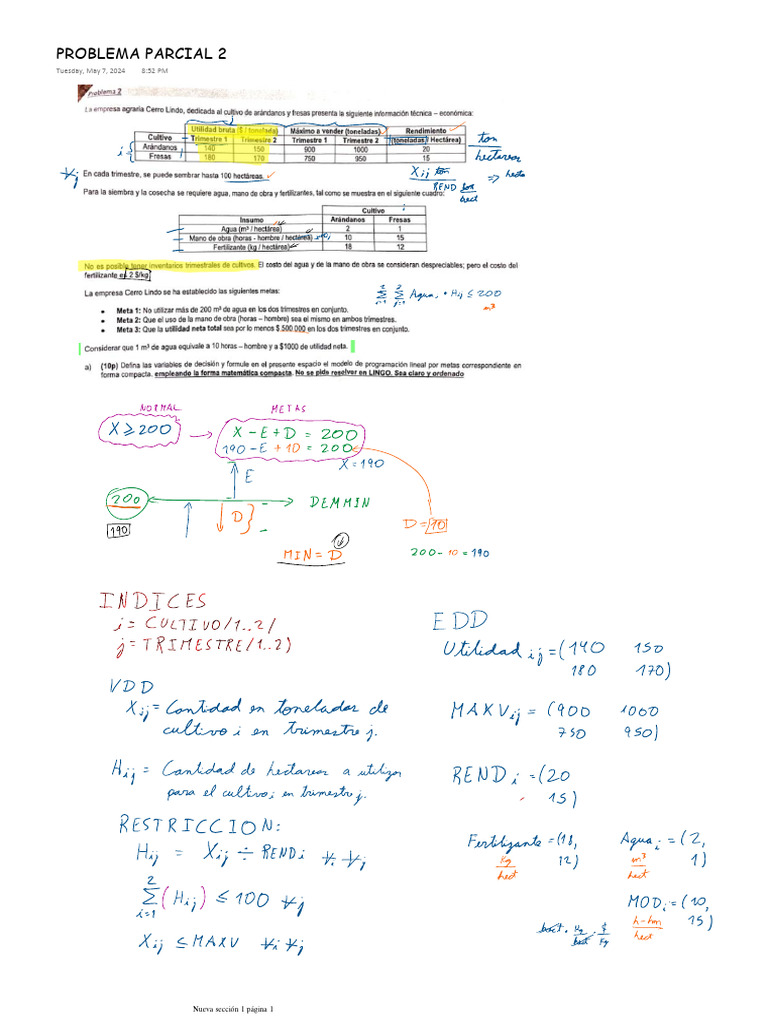 PROBLEMA PARCIAL 2
Tuesday, May 7, 2024 8:52 PM
Problema 2
La empresa agraria Cerro Lindo, dedicada al cultivo de arándanos y fresas presenta la siguiente información técnica – económica:
Utilidad bruta ($ / tonelada) Máximo a vender (toneladas) Rendimiento
Cultivo Trimestre 1 Trimestre 2 Trimestre 1 Trimestre 2 (toneladas/ Hectárea)
Arándanos 140 150 900 1000 20
Fresas 180 170 750 950 15
i=
ton
hectareas
∀j
En cada trimestre, se puede sembrar hasta 100 hectáreas.
Xij ton
REND ton
hect
=> hecta
Para la siembra y la cosecha se requiere agua, mano de obra y fertilizantes, tal como se muestra en el siguiente cuadro:
Cultivo
Insumo Arándanos Fresas
Agua (m³ / hectárea) 2 1
Mano de obra (horas - hombre / hectárea) 10 15
Fertilizante (kg / hectárea) 18 12
No es posible tener inventarios trimestrales de cultivos. El costo del agua y de la mano de obra se consideran despreciables; pero el costo del
fertilizante es 2 $/kg
La empresa Cerro Lindo se ha establecido las siguientes metas:
∑ ∑ Agua i * Hij ≤ 200
m³
• Meta 1: No utilizar más de 200 m³ de agua en los dos trimestres en conjunto.
• Meta 2: Que el uso de la mano de obra (horas – hombre) sea el mismo en ambos trimestres.
• Meta 3: Que la utilidad neta total sea por lo menos $ 500 000 en los dos trimestres en conjunto.
Considerar que 1 m³ de agua equivale a 10 horas – hombre y a $1000 de utilidad neta.
a) (10p) Defina las variables de decisión y formule en el presente espacio el modelo de programación lineal por metas correspondiente en
forma compacta, empleando la forma matemática compacta. No se pide resolver en LINGO. Sea claro y ordenado
NORMAL METAS
X ≥ 200
X - E + D = 200
190 - E + 1D = 200
X = 190
E
200
DEMMIN
D
190
D = 10
MIN = D
200 - 10 = 190
INDICES
i = CULTIVO/1..2/
j = TRIMESTRE/1..2)
VDD
Xij = Cantidad en toneladas de
cultivo i en trimestre j.
Hij = Cantidad de hectareas a utilizar
para el cultivo i en trimestre j.
RESTRICCION:
Hij = Xij ÷ RENDi ∀i ∀j
2
∑ (Hij) ≤ 100 ∀j
i=1
Xij ≤ MAXV ∀i ∀j
EDD
Utilidad ij = (140 150
180 170)
MAXVij = (900 1000
750 950)
RENDi = (20
15)
Fertilizante = (18,
12)
Kg
hect
Agua i = (2,
1)
m³
hect
MODi = (10,
15)
h-hom
hect
hect * Kg/hect * $/Kg
Nueva sección 1 página 1